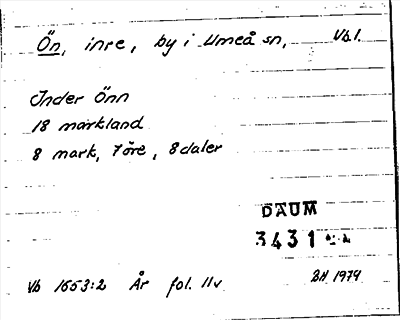 Ön, inre, by i Umeå sn, Vb.
Inder Önn
18 markland
8 mark, 7 öre, 8 daler
DAUM
3431
Vb 1653:2 År fol. 11v BH 1974